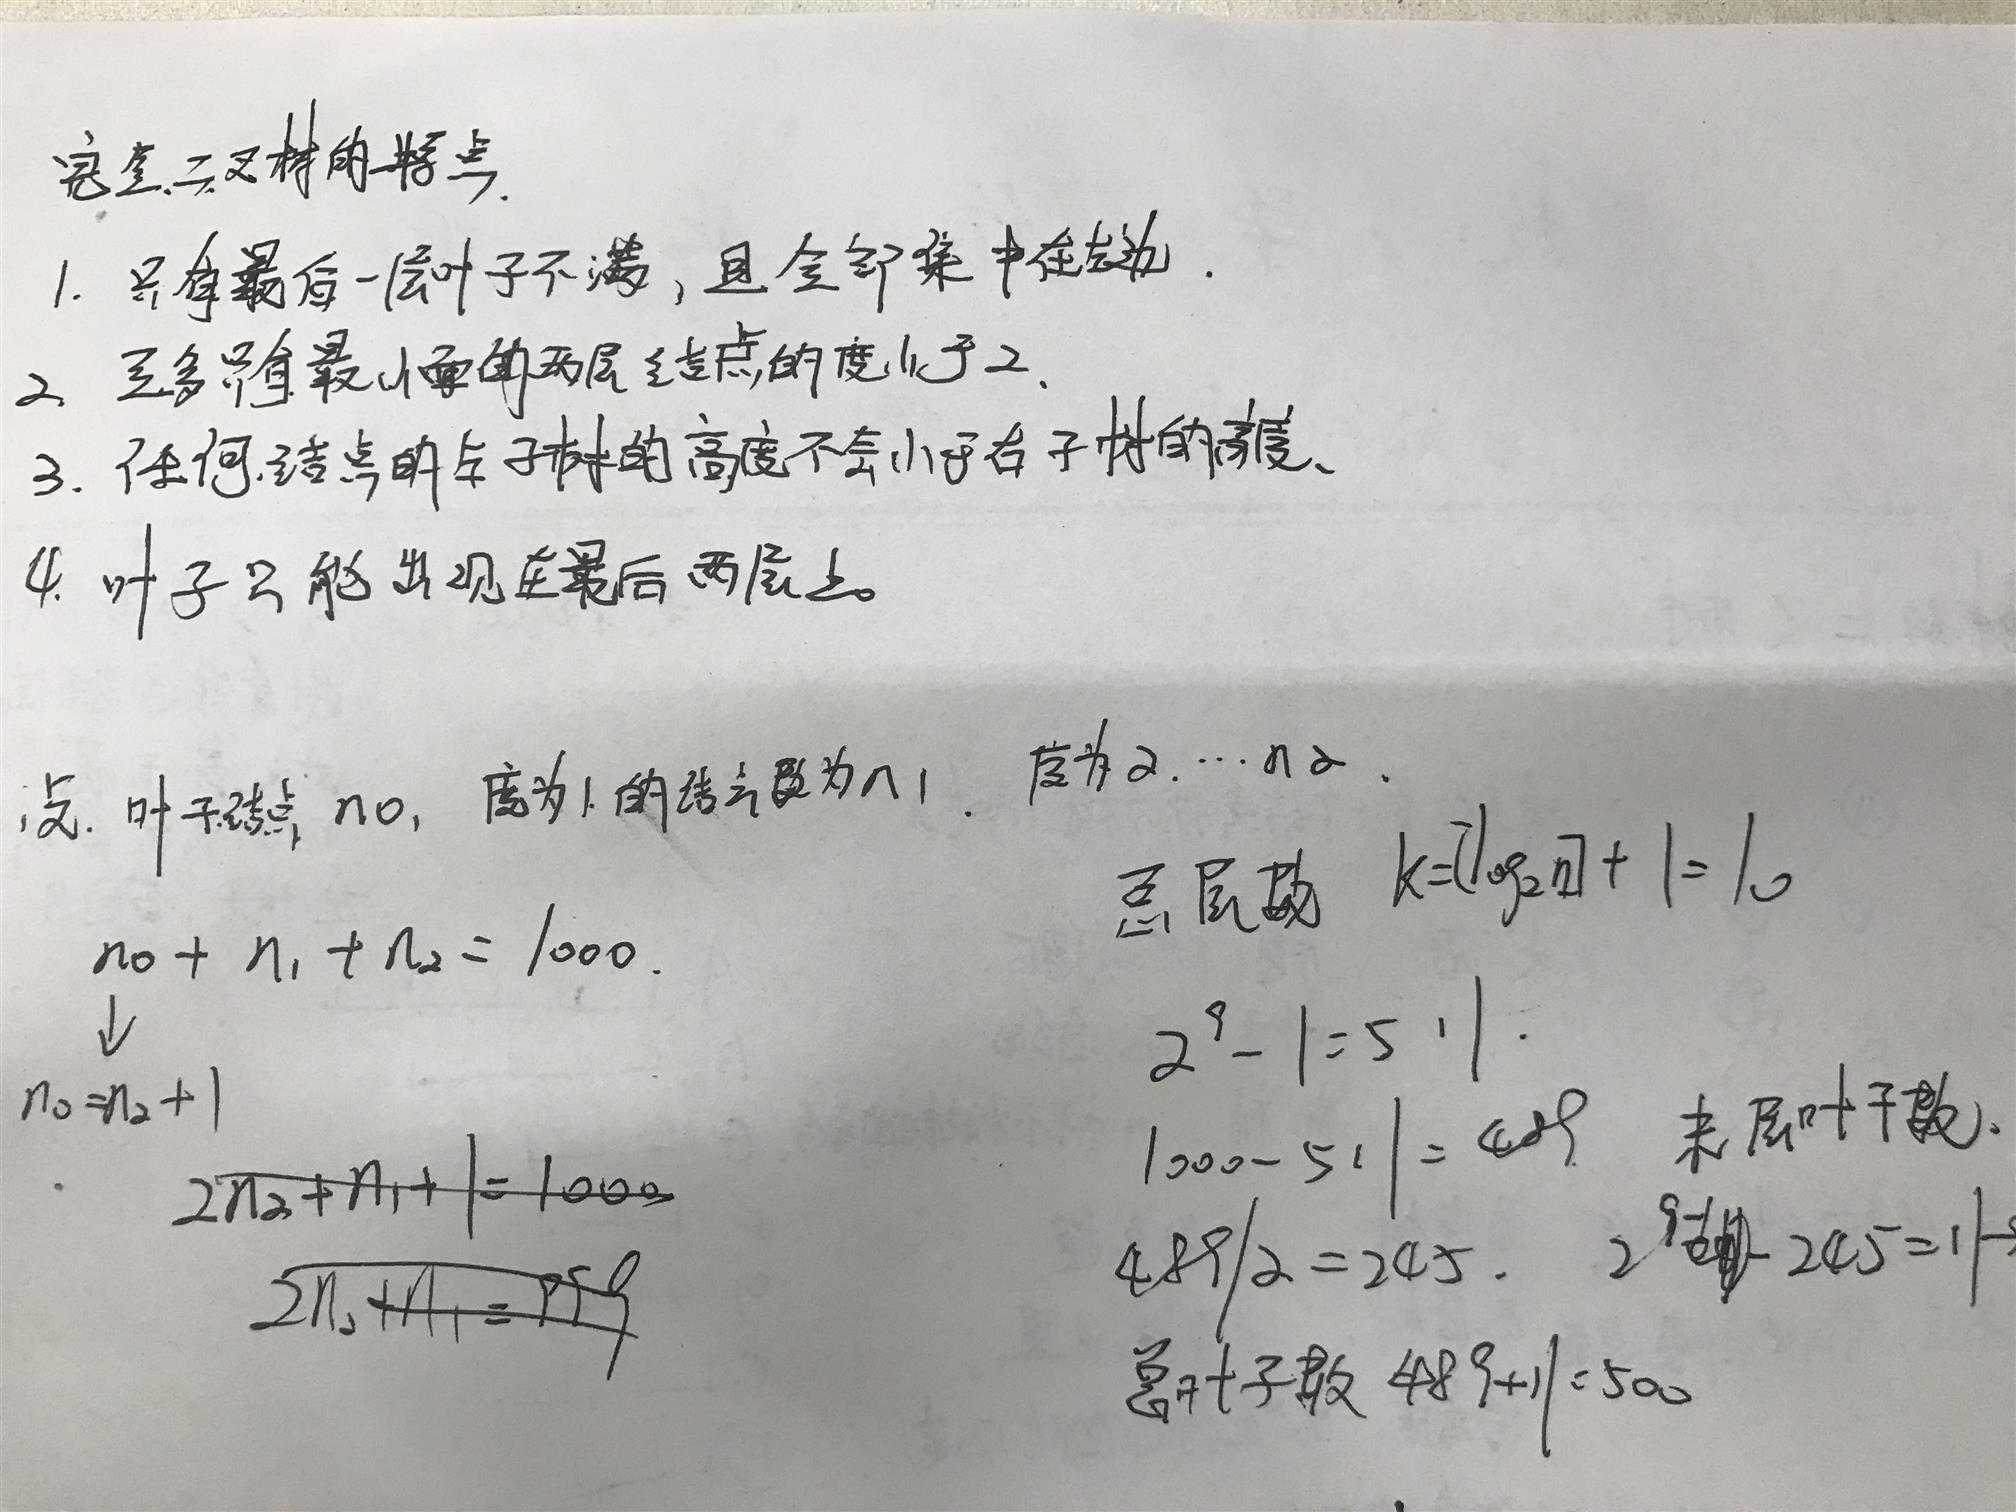 完全二叉树的特点.
1. 只有最后一层叶子不满，且全部集中在左边.
2. 至多只有最下面的两层结点的度小于2.
3. 任何结点的左子树的高度不会小于右子树的高度、
4. 叶子只能出现在最后两层上。
设. 叶子结点 n0, 度为1的结点数为n1. 度为2.…n2.
n0 + n1 + n2 = 1000.
↓
n0=n2+1
2n2+n1+1=1000
总层数 k=[log2n]+1=10
2^9-1=511.
1000-511=489 末层叶子数.
489/2=245. 245=11
总叶子数 489+11=500